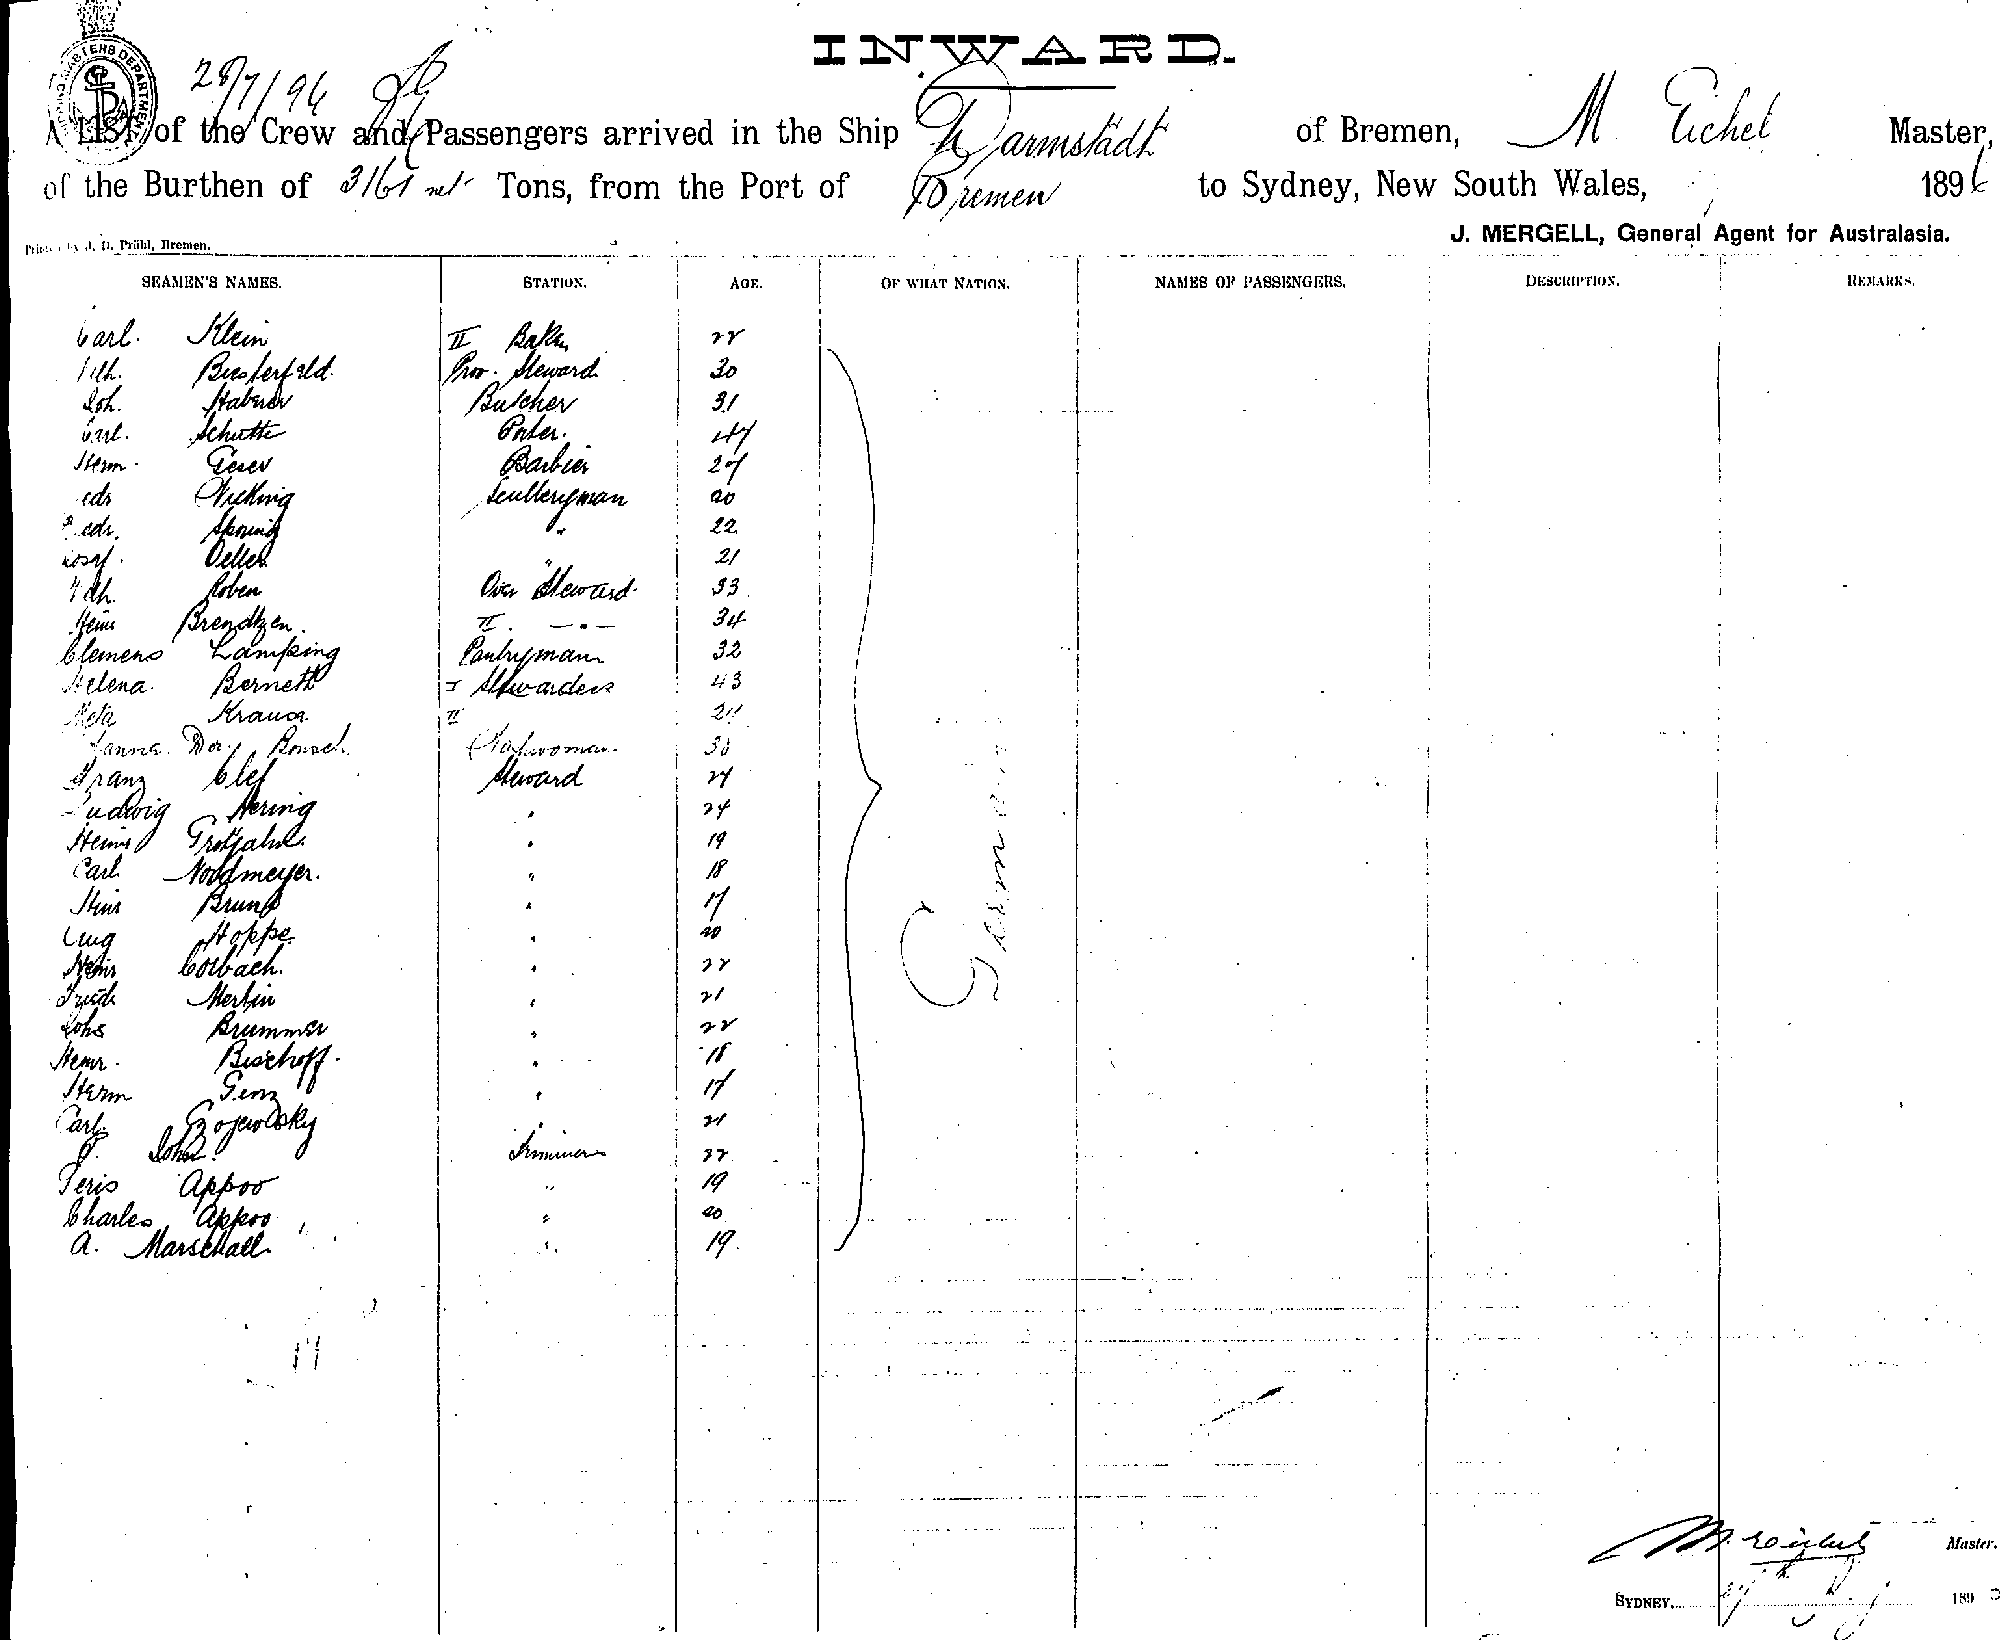 INWARD.
28/7/96
A List of the Crew and Passengers arrived in the Ship Darmstadt of Bremen, M Eichel Master,
of the Burthen of 3161 net Tons, from the Port of Bremen to Sydney, New South Wales, 1896
J. MERGELL, General Agent for Australasia.
Printed by J. D. Prühl, Bremen.
SEAMEN'S NAMES. STATION. AGE. OF WHAT NATION. NAMES OF PASSENGERS. DESCRIPTION. REMARKS.
Carl. Klein II Baker 22
Wilh. Biesterfeld Prov. Steward 30
Joh. Haberer Butcher 31
Carl. Schutte Porter. 47
Herm. Barbier 27
Wicking Sculleryman 20
Spring " 22
Josef. Oeller " 21
Wilh. Roben Over Steward 33
Heinr Brendtzen. II. — " — 34
Clemens Lamping Pantryman 32
Helena Bernett I Stewardess 43
Meta Krause II 24
36
Franz Clef Steward 24
Ludwig Hering " 24
Heinr Grotjahn " 19
Carl Nordmeyer. " 18
Heinr Bruns " 17
Aug Hoppe " 20
Heinr Colbach. " 22
Friedr Mertin " 21
Johs Brummer " 22
Heinr. Bischoff. " 18
Herm Genz " 17
Carl 21
J. John. Trimmer 22
Peris Appoo " 19
Charles Appoo " 20
A. Marschall " 19
German
M. Eichel Master.
SYDNEY, 27th July 189